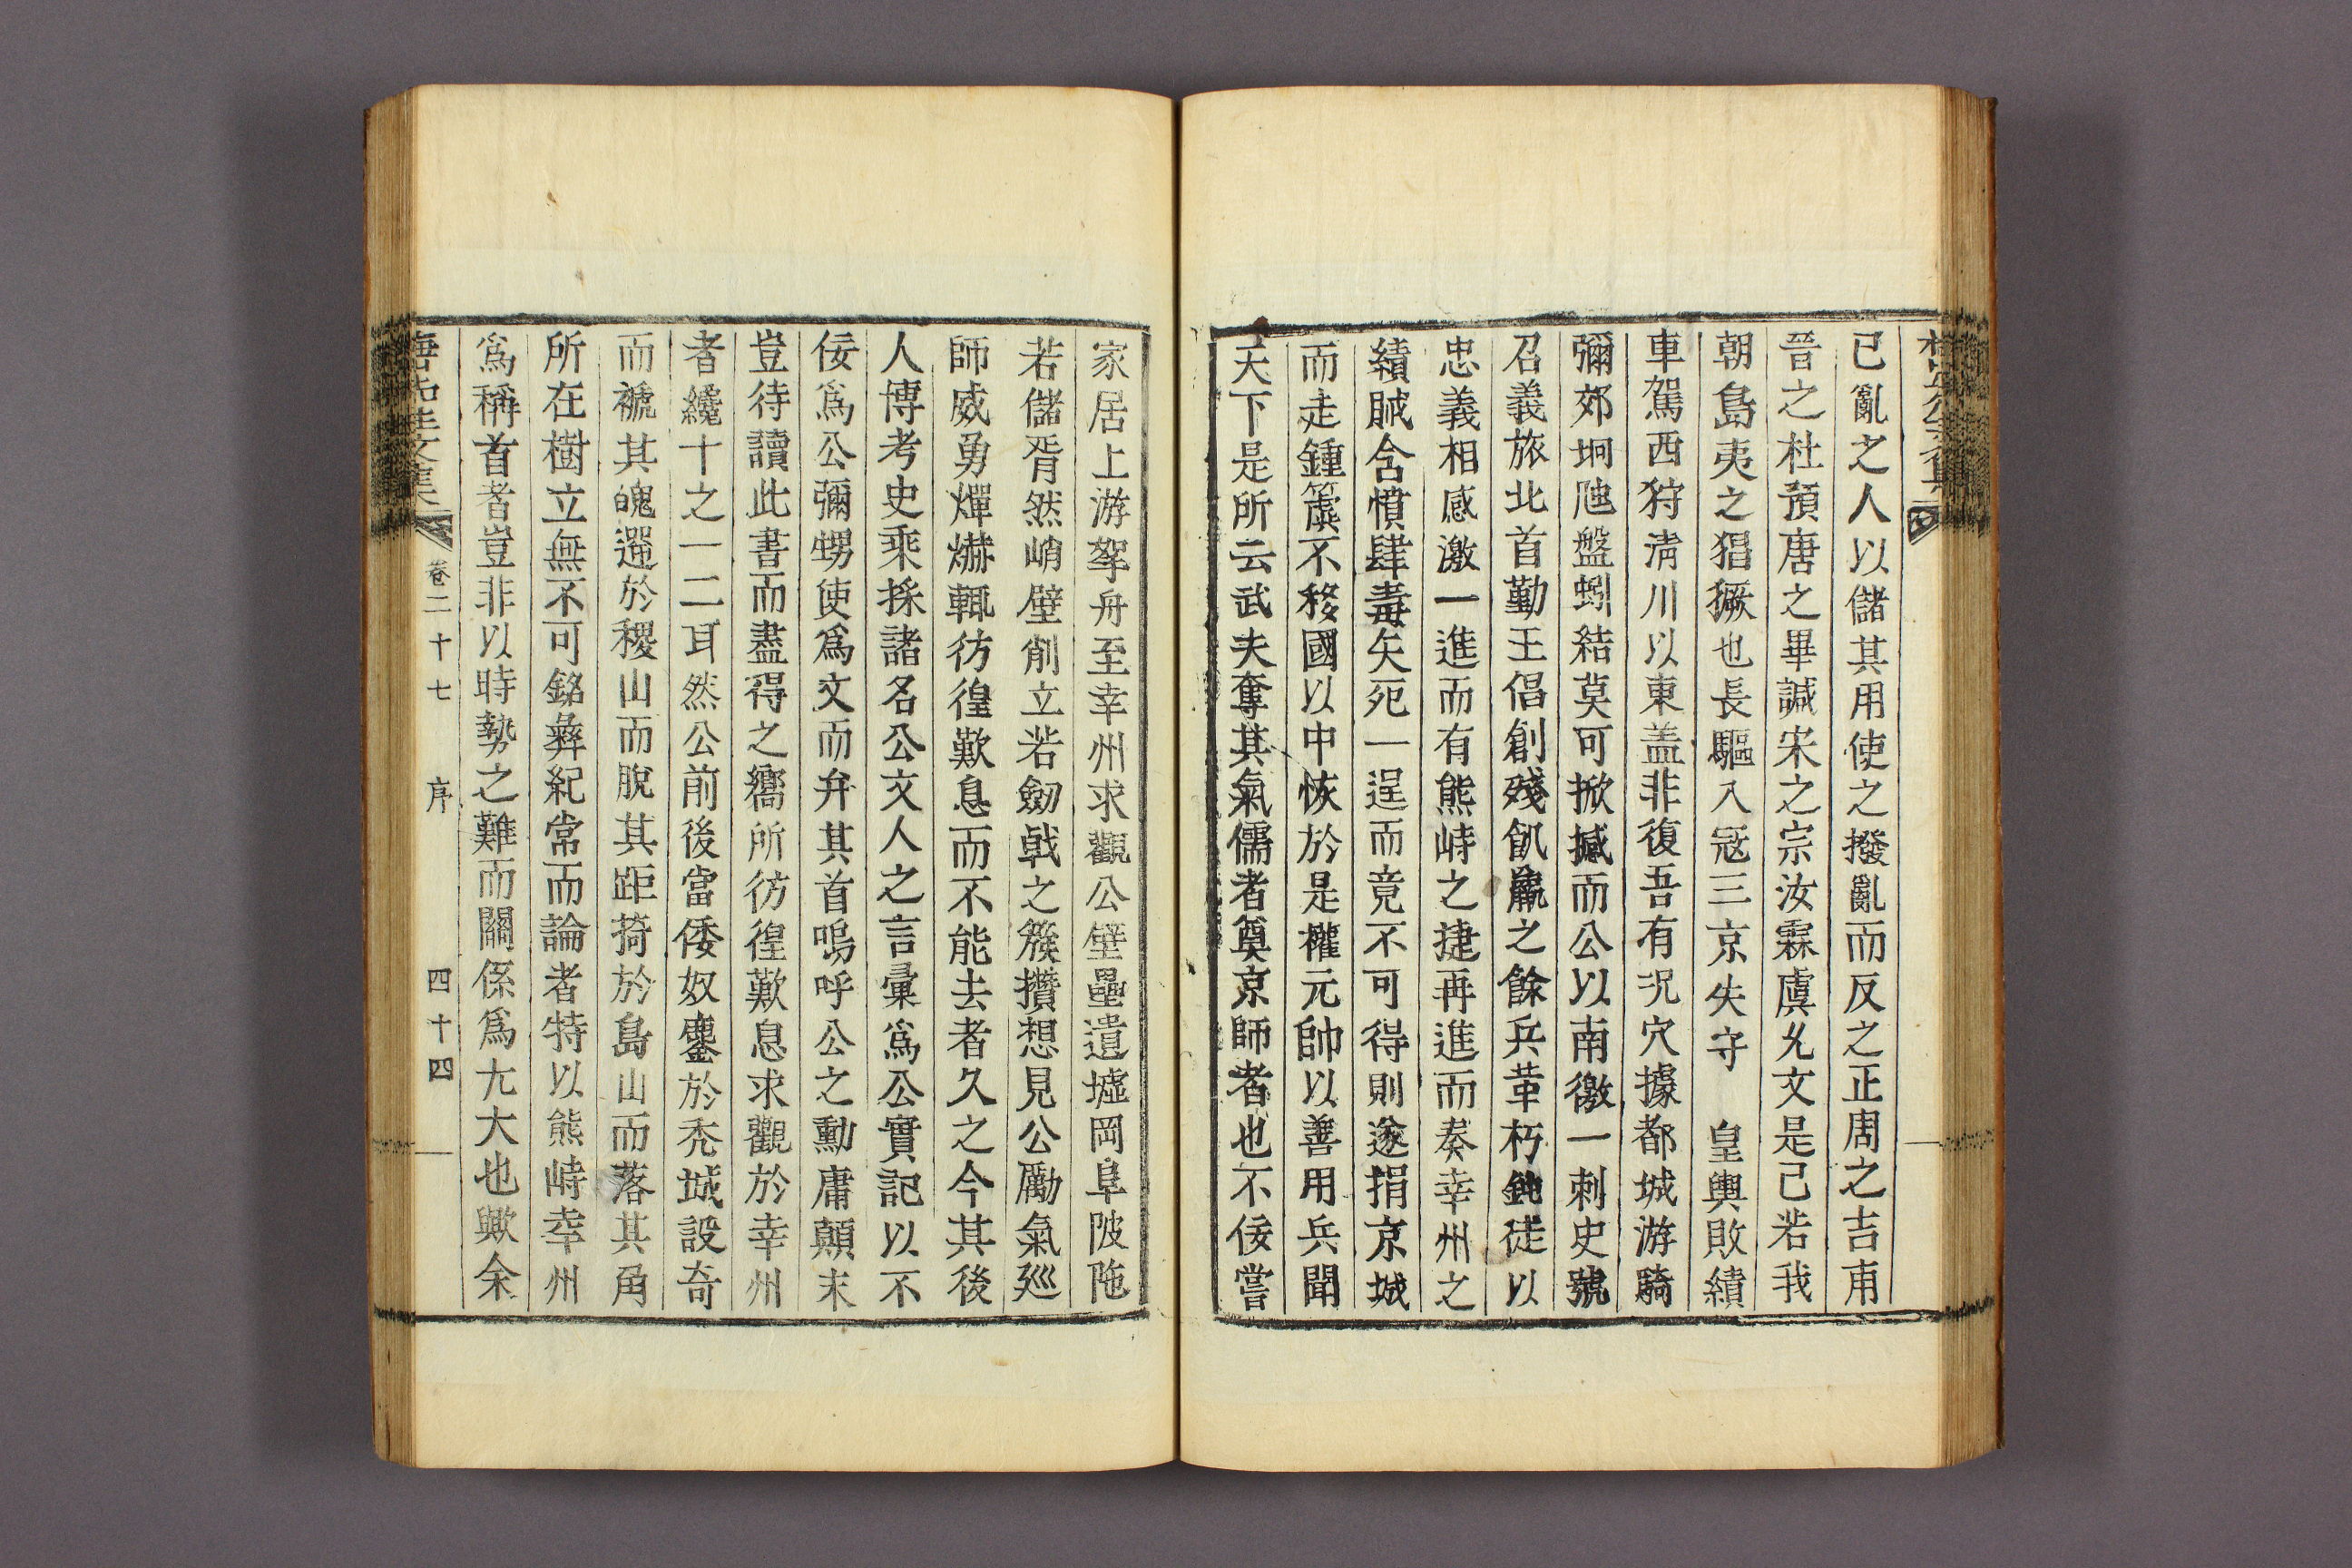 已亂之人以儲其用使之撥亂而反之正周之吉甫
晉之杜預唐之畢諴宋之宗汝霖虞允文是已若我
朝島夷之猖獗也長驅入寇三京失守　皇輿敗績
車駕西狩淸川以東盖非復吾有况穴據都城游騎
彌郊坰虺盤蚓結莫可掀撼而公以南徼一刺史號
召義旅北首勤王倡創殘飢羸之餘兵革朽鈍徒以
忠義相感激一進而有熊峙之捷再進而奏幸州之
績賊含憤肆毒矢死一逞而竟不可得則遂捐京城
而走鍾簴不移國以中恢於是擢元帥以善用兵聞
天下是所云武夫奪其氣儒者奠京師者也不佞嘗
家居上游挐舟至幸州求觀公壁壘遺墟岡阜陂陁
若儲胥然峭壁削立若劒戟之簇攢想見公勵氣廵
師威勇燀爀輒彷徨歎息而不能去者久之今其後
人博考史乘採諸名公文人之言彙爲公實記以不
佞爲公彌甥使爲文而弁其首嗚呼公之勳庸顛末
豈待讀此書而盡得之嚮所彷徨歎息求觀於幸州
者纔十之一二耳然公前後當倭奴鏖於禿城設奇
而褫其魄遌於稷山而脫其距掎於島山而落其角
所在樹立無不可銘彝紀常而論者特以熊峙幸州
爲稱首者豈非以時勢之難而關係爲尤大也歟余
卷二十七　序　四十四